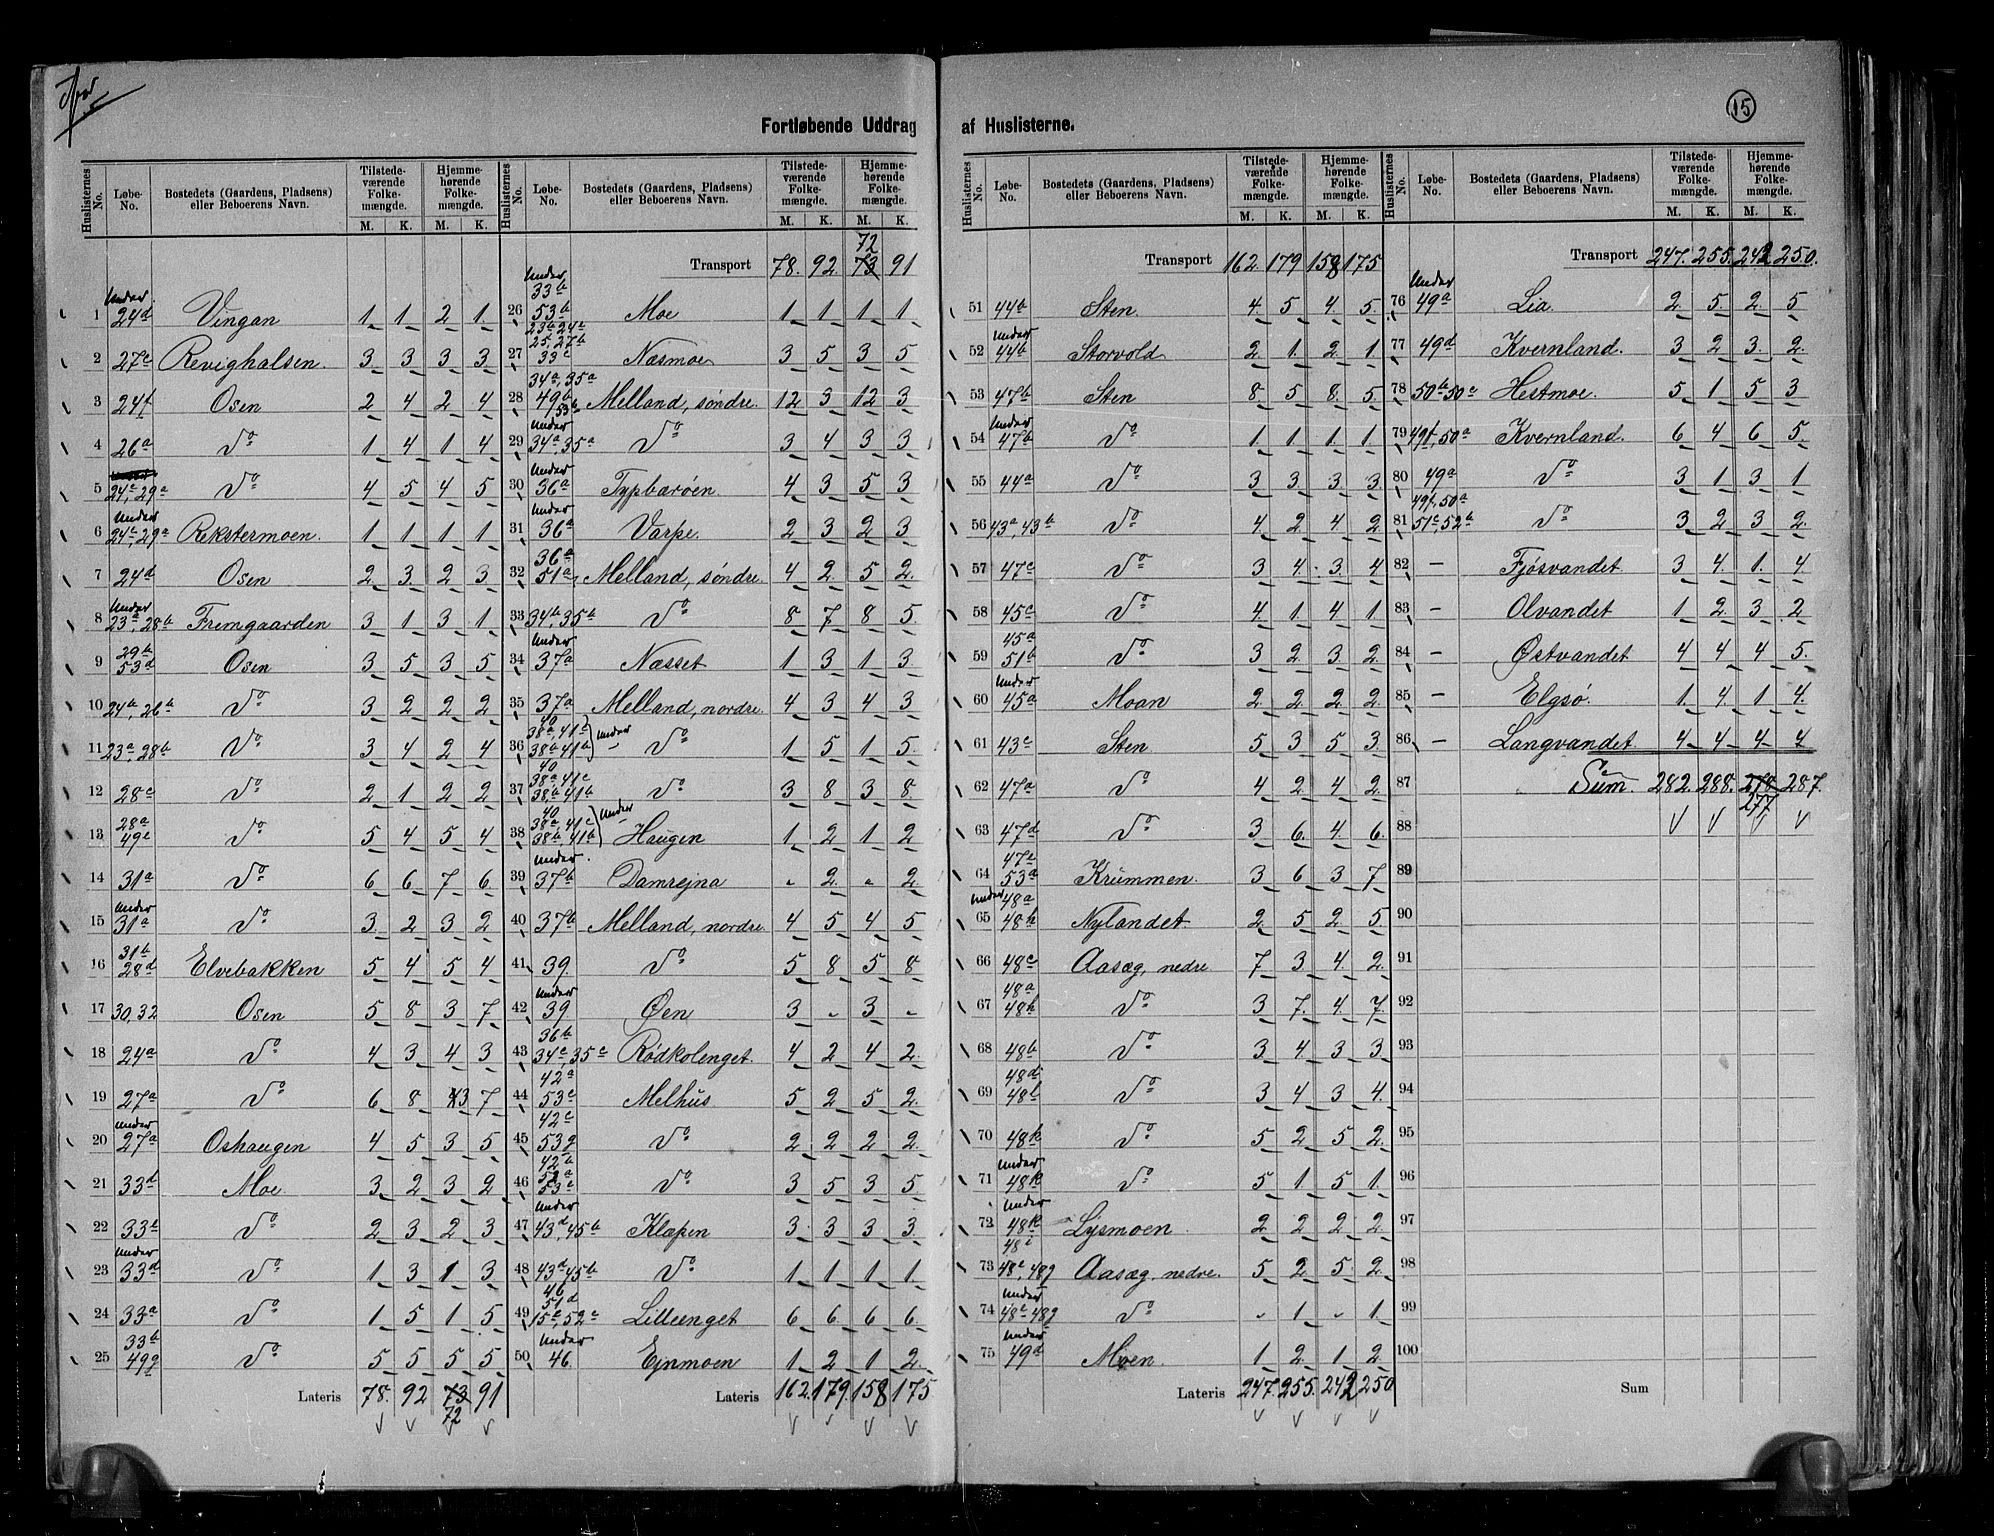 15
Fortløbende Uddrag af Huslisterne.
Huslisternes No. Løbe-No. Bostedets (Gaardens, Pladsens) eller Beboerens Navn. Tilstedeværende Folkemængde. M. K. Hjemmehørende Folkemængde. M. K.
1 Under 24d Vingan 1 1 2 1
2 27c Revighalsen. 3 3 3 3
3 24f Osen 2 4 2 4
4 26a Do 1 4 1 4
5 24e, 29a Do 4 5 4 5
6 Under 24e, 29a Rekstermoen. 1 1 1 1
7 24d Osen 2 3 2 3
8 Under 23a, 28b Fremgaarden 3 1 3 1
9 29b 53d Osen 3 5 3 5
10 24b, 26b Do 3 2 2 2
11 23a, 28b Do 3 4 2 4
12 28c Do 2 1 2 2
13 28a 49c Do 5 4 5 4
14 31a Do 6 6 7 6
15 Under 31a Do 3 2 3 2
16 31b 28d Elvebakken 5 4 5 4
17 30, 32 Osen 5 8 3 7
18 24a Do 4 3 4 3
19 27a Do 6 8 3 7
20 Under 27a Oshaugen 4 5 3 5
21 33d Moe 3 2 3 2
22 33b Do 2 3 2 3
23 Under 33d Do 1 3 1 3
24 33a Do 1 5 1 5
25 33b 49g Do 5 5 5 5
Lateris 78. 92 73 72 91
Huslisternes No. Løbe-No. Bostedets (Gaardens, Pladsens) eller Beboerens Navn. Tilstedeværende Folkemængde. M. K. Hjemmehørende Folkemængde. M. K.
Transport 78. 92. 73 72 91
26 Under 33b 53b Moe 1 1 1 1
27 23b, 24c 25, 27b 33c Næsmoe 3 5 3 5
28 34a, 35a 49b 53b Melland, søndre. 12 3 12 3
29 Under 34a, 35a Do 3 4 3 3
30 Under 36a Typbarøen 4 3 5 3
31 Under 36a Varpe. 2 3 2 3
32 36a 51a Melland, søndre. 4 2 5 2
33 34b 35b Do 8 7 8 5
34 Under 37a Næsset 1 3 1 3
35 37a Melland, nordre. 4 3 4 3
36 40 38a, 41c 38b, 41b Under Do 1 5 1 5
37 40 38a, 41c 38b, 41b Do 3 8 3 8
38 40 38a, 41c 38b, 41b Under Haugen 1 2 1 2
39 Under 37b Damrejna - 2 - 2
40 37b Melland, nordre 4 5 4 5
41 39 Do 5 8 5 8
42 Under 39 Øen 3 - 3 -
43 36b 34c, 35c Rødkolenget. 4 2 4 2
44 42a 53c Melhus 5 2 5 2
45 42c 53g Do 2 2 2 2
46 42b 52a 53e Do 3 5 3 5
47 Under 43d, 45b Klæpen 3 3 3 3
48 43d 45b Do 1 1 1 1
49 46 51d 15c, 52c Lilleenget 6 6 6 6
50 Under 46. Ejnmoen 1 2 1 2
Lateris 162. 179. 158 175
Huslisternes No. Løbe-No. Bostedets (Gaardens, Pladsens) eller Beboerens Navn. Tilstedeværende Folkemængde. M. K. Hjemmehørende Folkemængde. M. K.
Transport 162. 179 158 175
51 44b Sten 4 5 4 5
52 Under 44b Storvold 2 1 2 1
53 47b Sten 8 5 8 5
54 Under 47b Do 1 1 1 1
55 44a Do 3 3 3 3
56 43a, 43b Do 4 2 4 2
57 47c Do 3 4 3 4
58 45c Do 4 1 4 1
59 45a 51b Do 3 2 3 2
60 Under 45a Moan 2 2 2 2
61 43c Sten 5 3 5 3
62 47a Do 4 2 4 2
63 47d Do 3 6 4 6
64 47e 53a Krummen. 3 6 3 7
65 Under 48a 48h Nylandet 2 5 2 5
66 48c Aasæg, nedre 7 3 4 2
67 48a 48h Do 3 7 4 7
68 48b Do 3 4 3 3
69 48d 48l Do 3 4 3 4
70 48k Do 5 2 5 2
71 Under 48k Do 5 1 5 1
72 Under 48k Lysmoen 2 2 2 2
73 48i 48e, 48g Aasæg, nedre. 5 2 5 2
74 Under 48e 48g Do - 1 - 1
75 Under 49d Moen. 1 2 1 2
Lateris 247. 255. 242 250
Huslisternes No. Løbe-No. Bostedets (Gaardens, Pladsens) eller Beboerens Navn. Tilstedeværende Folkemængde. M. K. Hjemmehørende Folkemængde. M. K.
Transport 247. 255. 242 250.
76 Under 49a Lia 2 5 2 5
77 49d Kvernland. 3 2 3 2
78 50b 50c Hestmoe. 5 1 5 3
79 49f, 50a Kvernland. 6 4 6 5
80 49a Do 3 1 3 1
81 49f, 50a 51c, 52b Do 3 2 3 2
82 - Fjøsvandet 3 4 1 4
83 - Olvandet 1 2 3 2
84 - Østvandet 4 4 4 5
85 - Elgsø. 1 4 1 4
86 - Langvandet 4 4 4 4
87 Sum. 282. 288. 278 277 287.
88
89
90
91
92
93
94
95
96
97
98
99
100
Sum